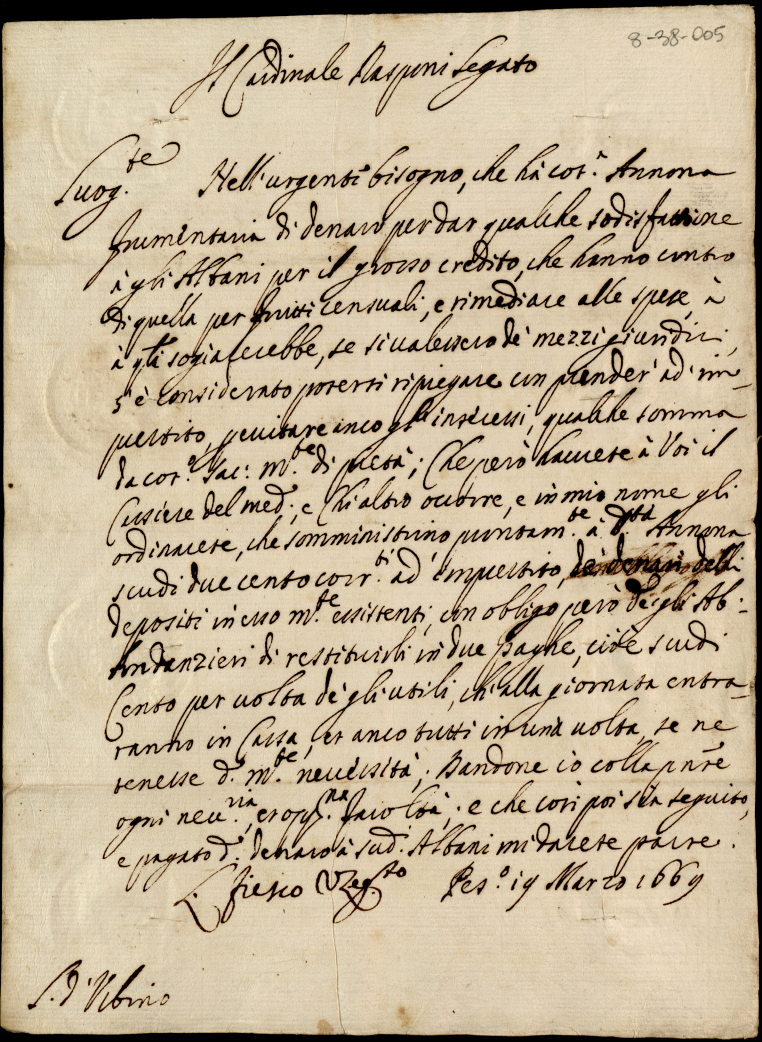 8-38-005
Il Cardinale Rasponi Legato
Luog.te Nell'urgente bisogno, che hà cot.ª Annona
frumentaria di denaro per dar qualche sodisfattione
à gli Albani per il grosso credito, che hanno contro
di quella per frutti censuali, e rimediare alle spese, à
à q.li sogiacerebbe, se si valessero de' mezzi giuridici,
s'è considerato potersi ripiegare con prender' ad im-
prestito, p evitare anco gl'interessi, qualche somma
da cot.º Sac: m.te di pietà; Che però haverete à Voi il
Cassiere del med.º, e Chi altro occorre, e in mio nome gli
ordinarete, che somministrino prontam.te à d.ta Annona
scudi due cento corr.ti ad' imprestito, de denari delli
depositi in esso m.te essistenti, con obligo però de gli Ab-
bondanzieri di restituirli in due paghe, cioè scudi
Cento per volta de gli utili, ch'alla giornata entra-
ranno in Cassa, et anco tutti in una volta, se ne
tenesse d.º m.te necessità; Dandone io colla pnte
ogni nec.ria, et opp.na facoltà; e che così poi sia seguito,
e pagato d.º denaro à sud.i Albani mi darete parte.
L. Fiesco V Leg.to Pes.º 19 Marzo 1669
L. d'Urbino